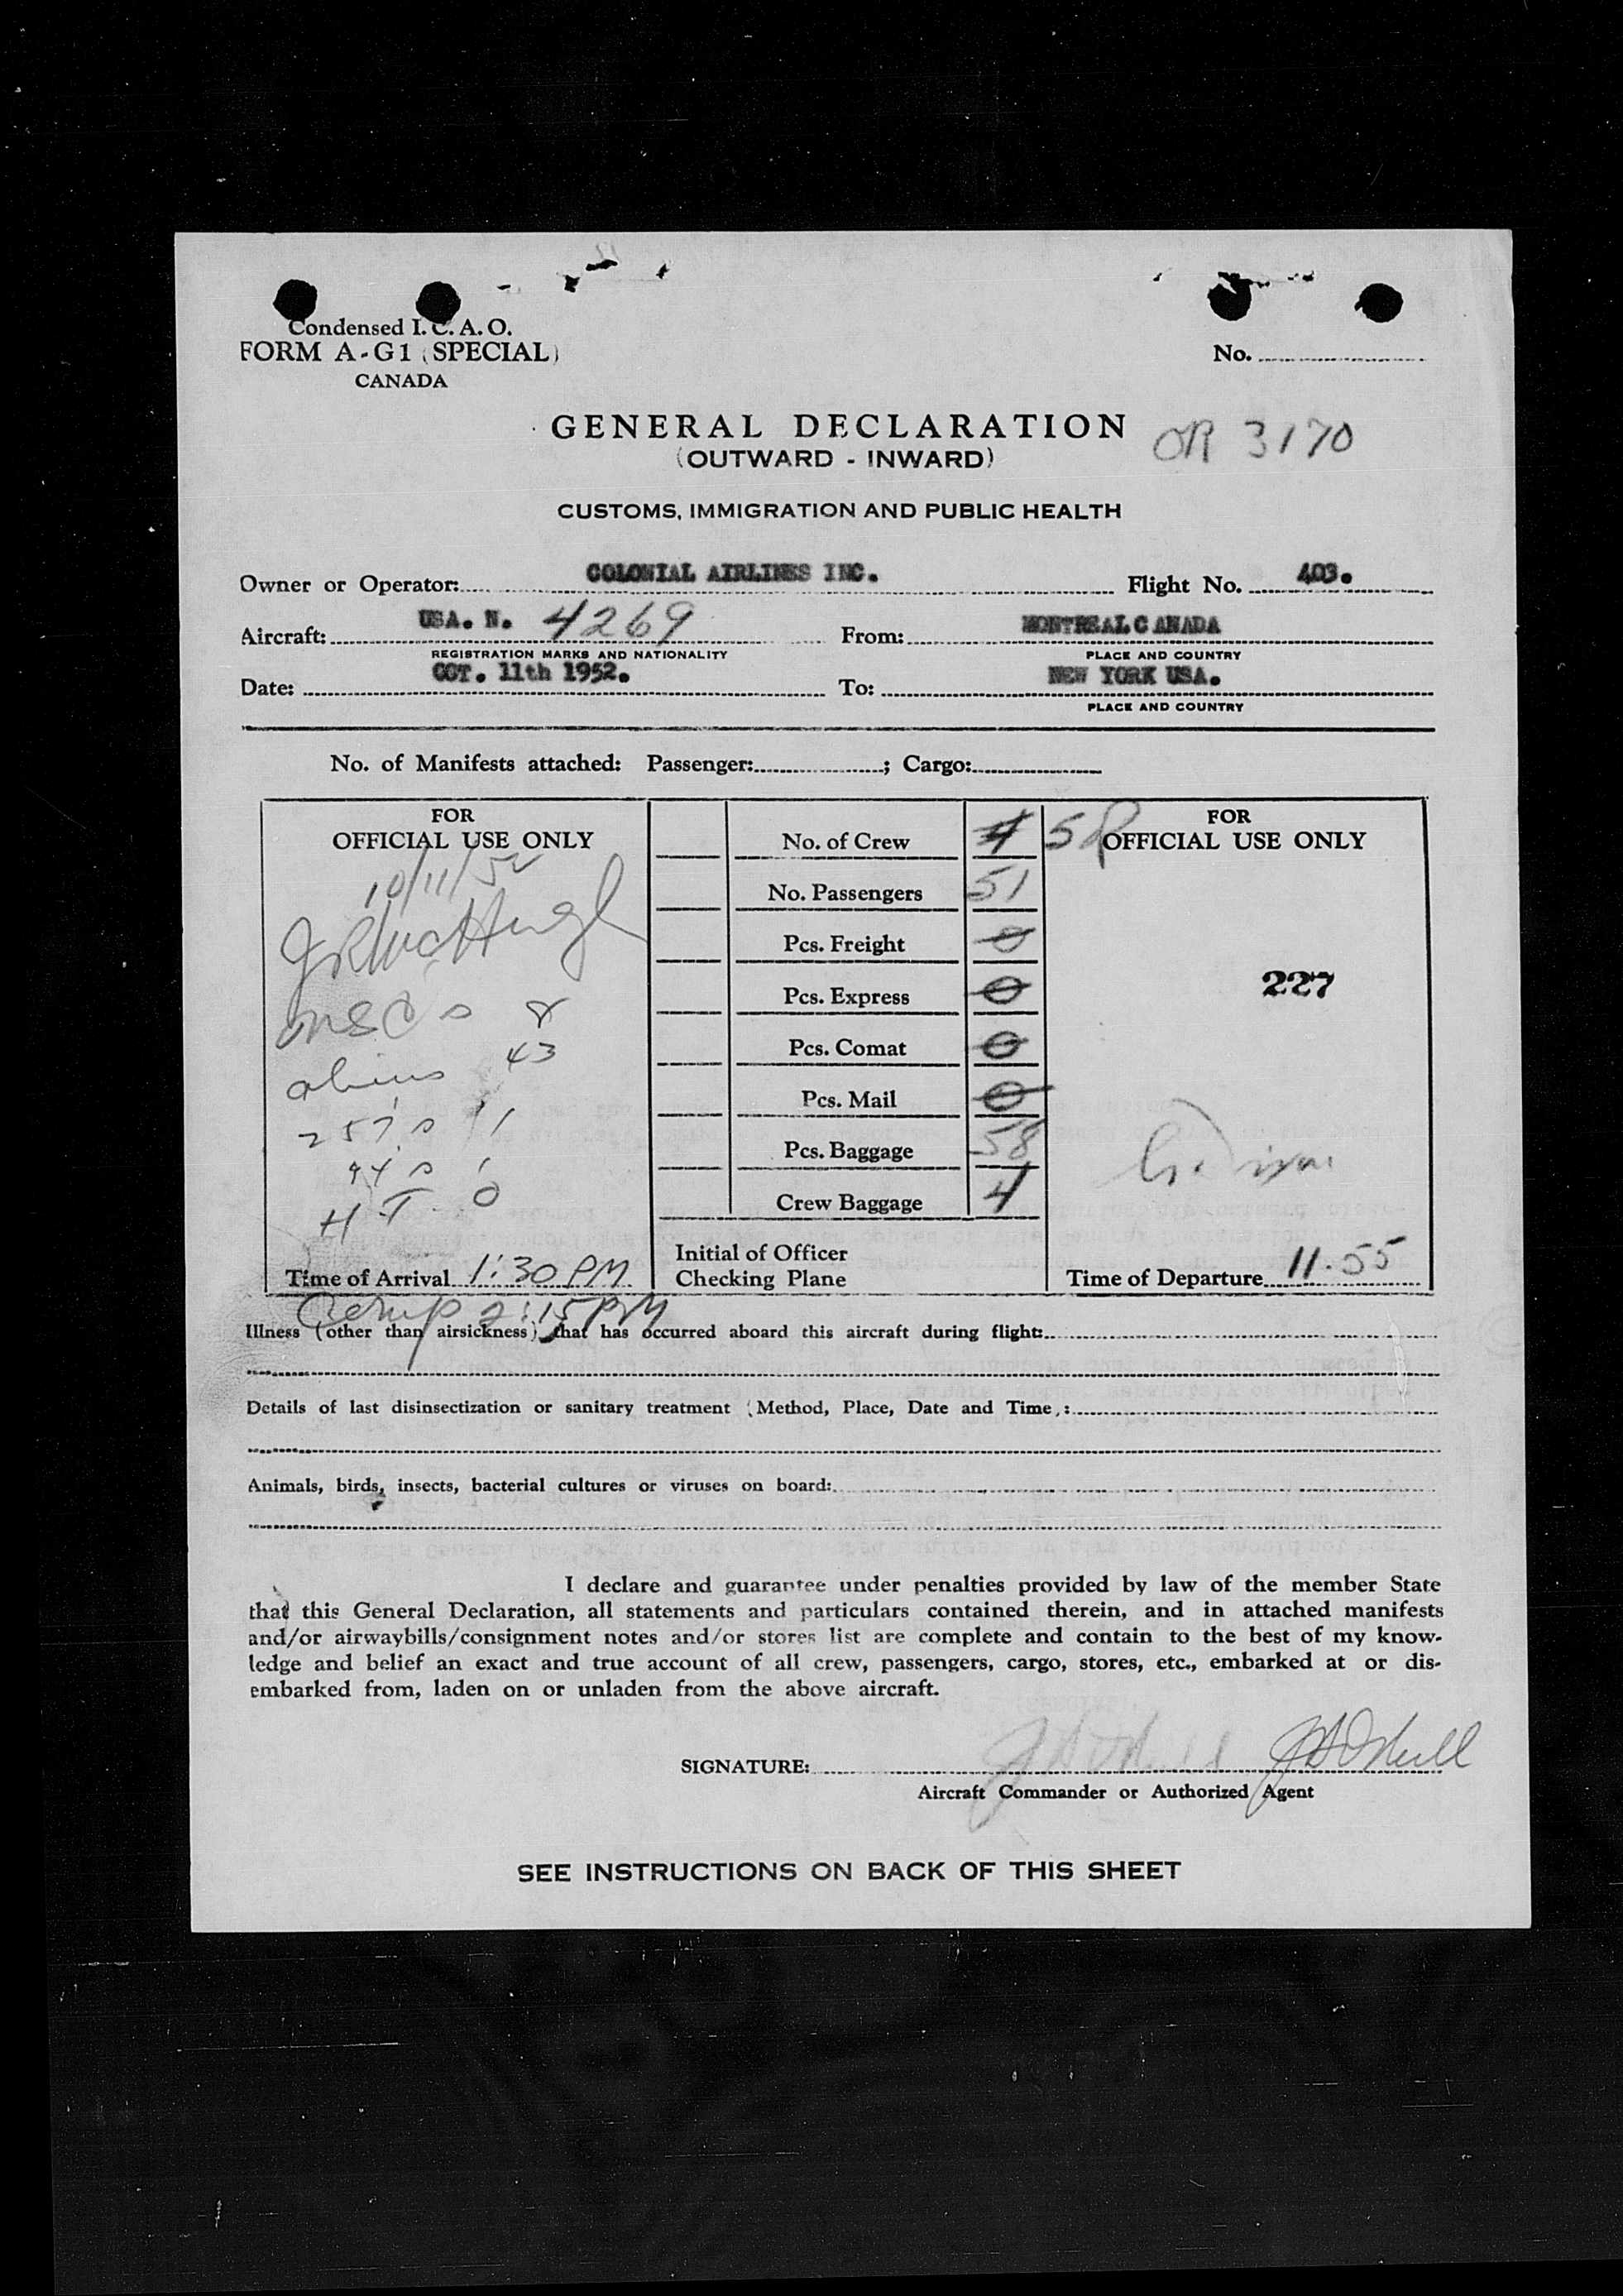 Condensed I. C. A. O.
FORM A-G1 (SPECIAL)
CANADA
No.
GENERAL DECLARATION
OR 3170
(OUTWARD - INWARD)
CUSTOMS, IMMIGRATION AND PUBLIC HEALTH
Owner or Operator: COLONIAL AIRLINES INC. Flight No. 403.
Aircraft: USA. N. 4269 From: MONTREAL CANADA
REGISTRATION MARKS AND NATIONALITY PLACE AND COUNTRY
Date: OCT. 11th 1952. To: NEW YORK USA.
PLACE AND COUNTRY
No. of Manifests attached: Passenger: ; Cargo:
FOR
OFFICIAL USE ONLY
10/11/52
aliens 43
257's 11
H.T. 0
Time of Arrival 1:30 PM
Comp 2:15 PM
No. of Crew 4 5
No. Passengers 51
Pcs. Freight 0
Pcs. Express 0
Pcs. Comat 0
Pcs. Mail 0
Pcs. Baggage 58
Crew Baggage 4
Initial of Officer
Checking Plane
FOR
OFFICIAL USE ONLY
227
Time of Departure 11.55
Illness (other than airsickness) that has occurred aboard this aircraft during flight:
Details of last disinsectization or sanitary treatment (Method, Place, Date and Time):
Animals, birds, insects, bacterial cultures or viruses on board:
I declare and guarantee under penalties provided by law of the member State
that this General Declaration, all statements and particulars contained therein, and in attached manifests
and/or airwaybills/consignment notes and/or stores list are complete and contain to the best of my know-
ledge and belief an exact and true account of all crew, passengers, cargo, stores, etc., embarked at or dis-
embarked from, laden on or unladen from the above aircraft.
SIGNATURE:
Aircraft Commander or Authorized Agent
SEE INSTRUCTIONS ON BACK OF THIS SHEET